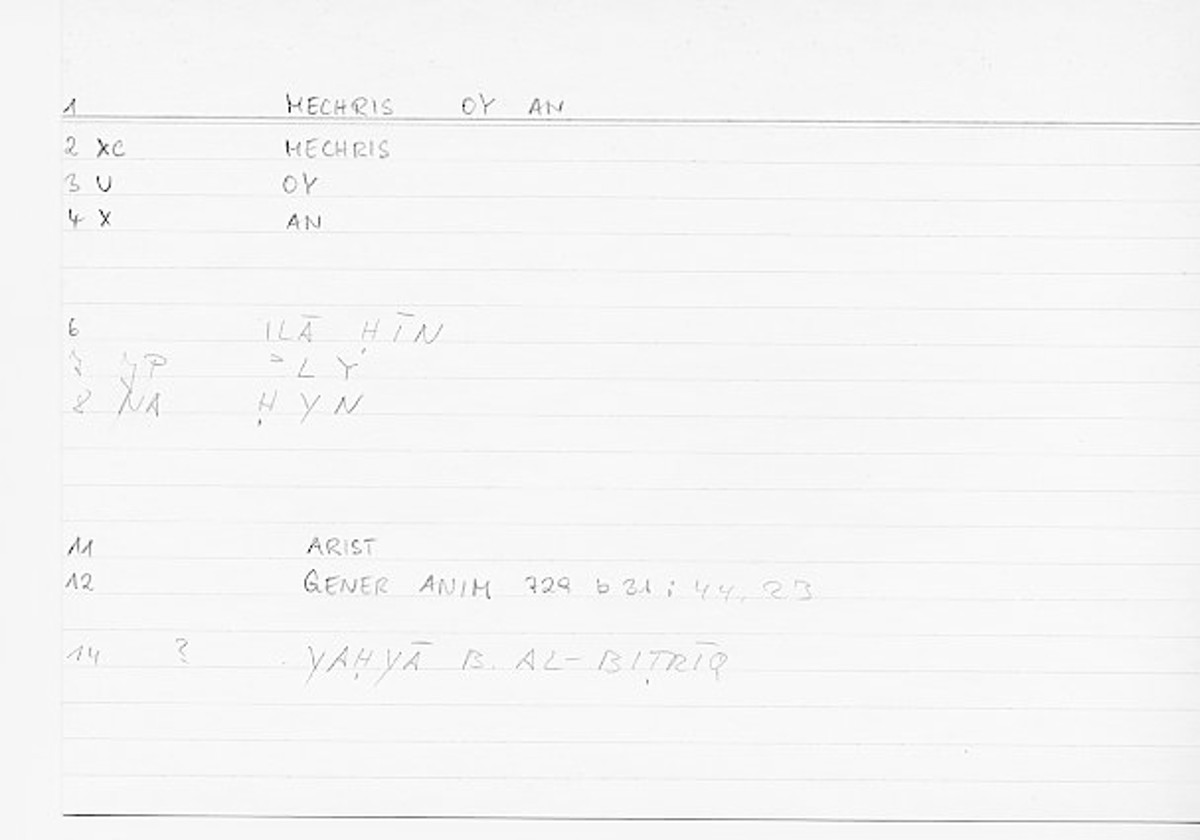 1 MECHRIS OY AN
2 XC MECHRIS
3 U OY
4 X AN
6 ILĀ ḤĪN
7 YP ʾLY
8 NA ḤYN
11 ARIST
12 GENER ANIM 729 b 31 : 44, 23
14 ? YAḤYĀ B. AL-BIṬRĪQ